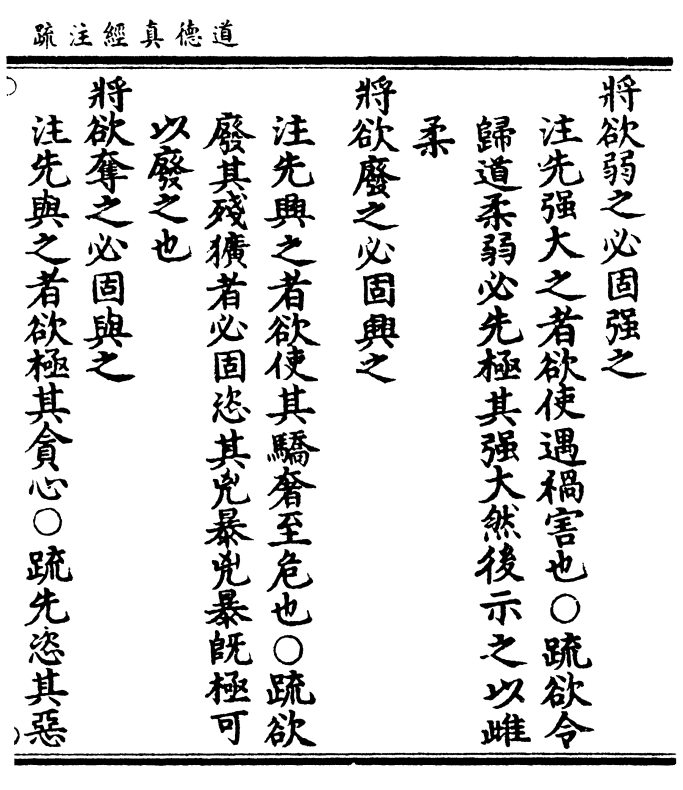 道德真經注疏
將欲弱之必固强之
注先强大之者欲使遇禍害也〇疏欲令
歸道柔弱必先極其强大然後示之以雌
柔
將欲廢之必固興之
注先興之者欲使其驕奢至危也〇疏欲
廢其殘獷者必固恣其兇暴兇暴既極可
以廢之也
將欲奪之必固與之
注先與之者欲極其貪心〇疏先恣其惡